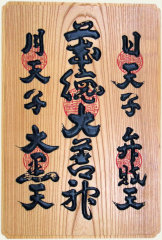 日天子 弁財天
徳大善神
月天子 大黒天